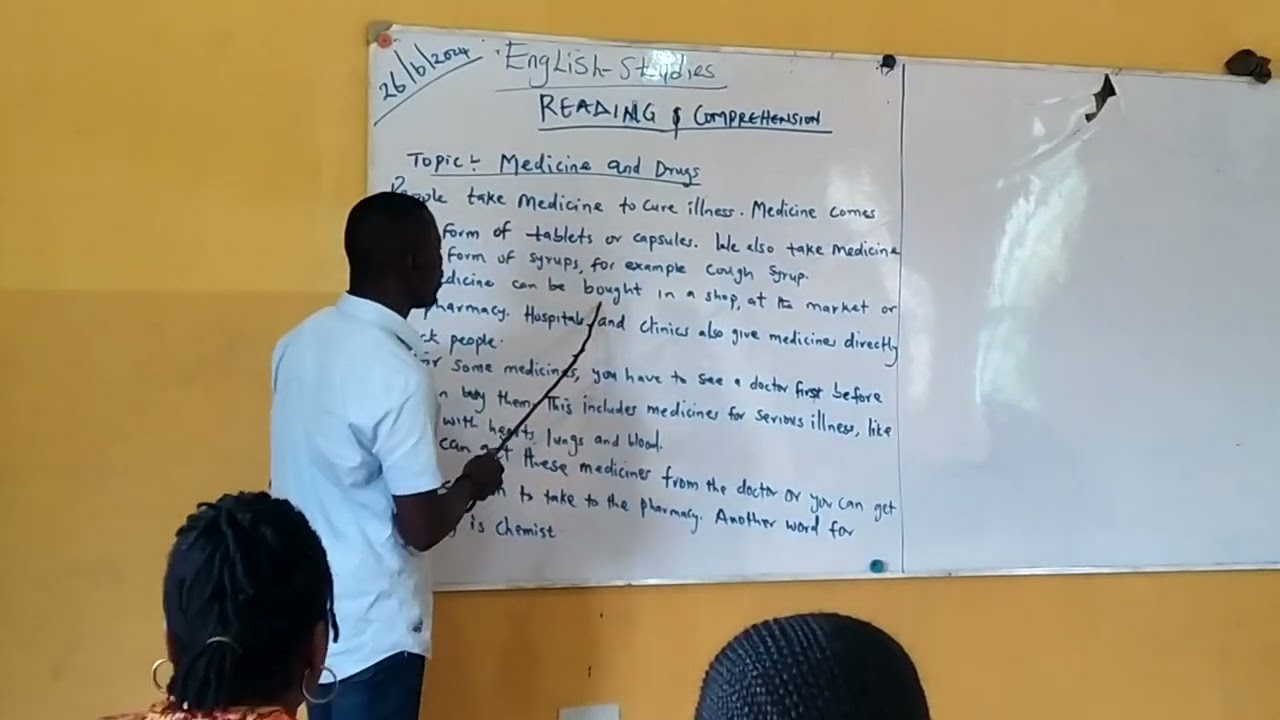 26/6/2024
English-Studies
READING & COMPREHENSION
Topic:- Medicine and Drugs
People take medicine to cure illness. Medicine comes
form of tablets or capsules. We also take medicine
form of syrups, for example cough syrup.
can be bought in a shop, at the market or
pharmacy. Hospitals and clinics also give medicines directly
people.
For some medicines, you have to see a doctor first before
buy them. This includes medicines for serious illness, like
with hearts, lungs and blood.
can get these medicines from the doctor or you can get
to take to the pharmacy. Another word for
is chemist